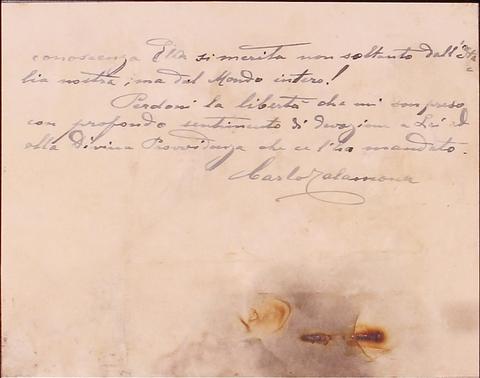 conoscenza Ella si merita non soltanto dall'Ita
lia nostra, ma dal Mondo intero!
Perdoni la libertà che mi son preso
con profondo sentimento di devozione a Lei ed
alla Divina Provvidenza che ce l'ha mandato.
Carlo